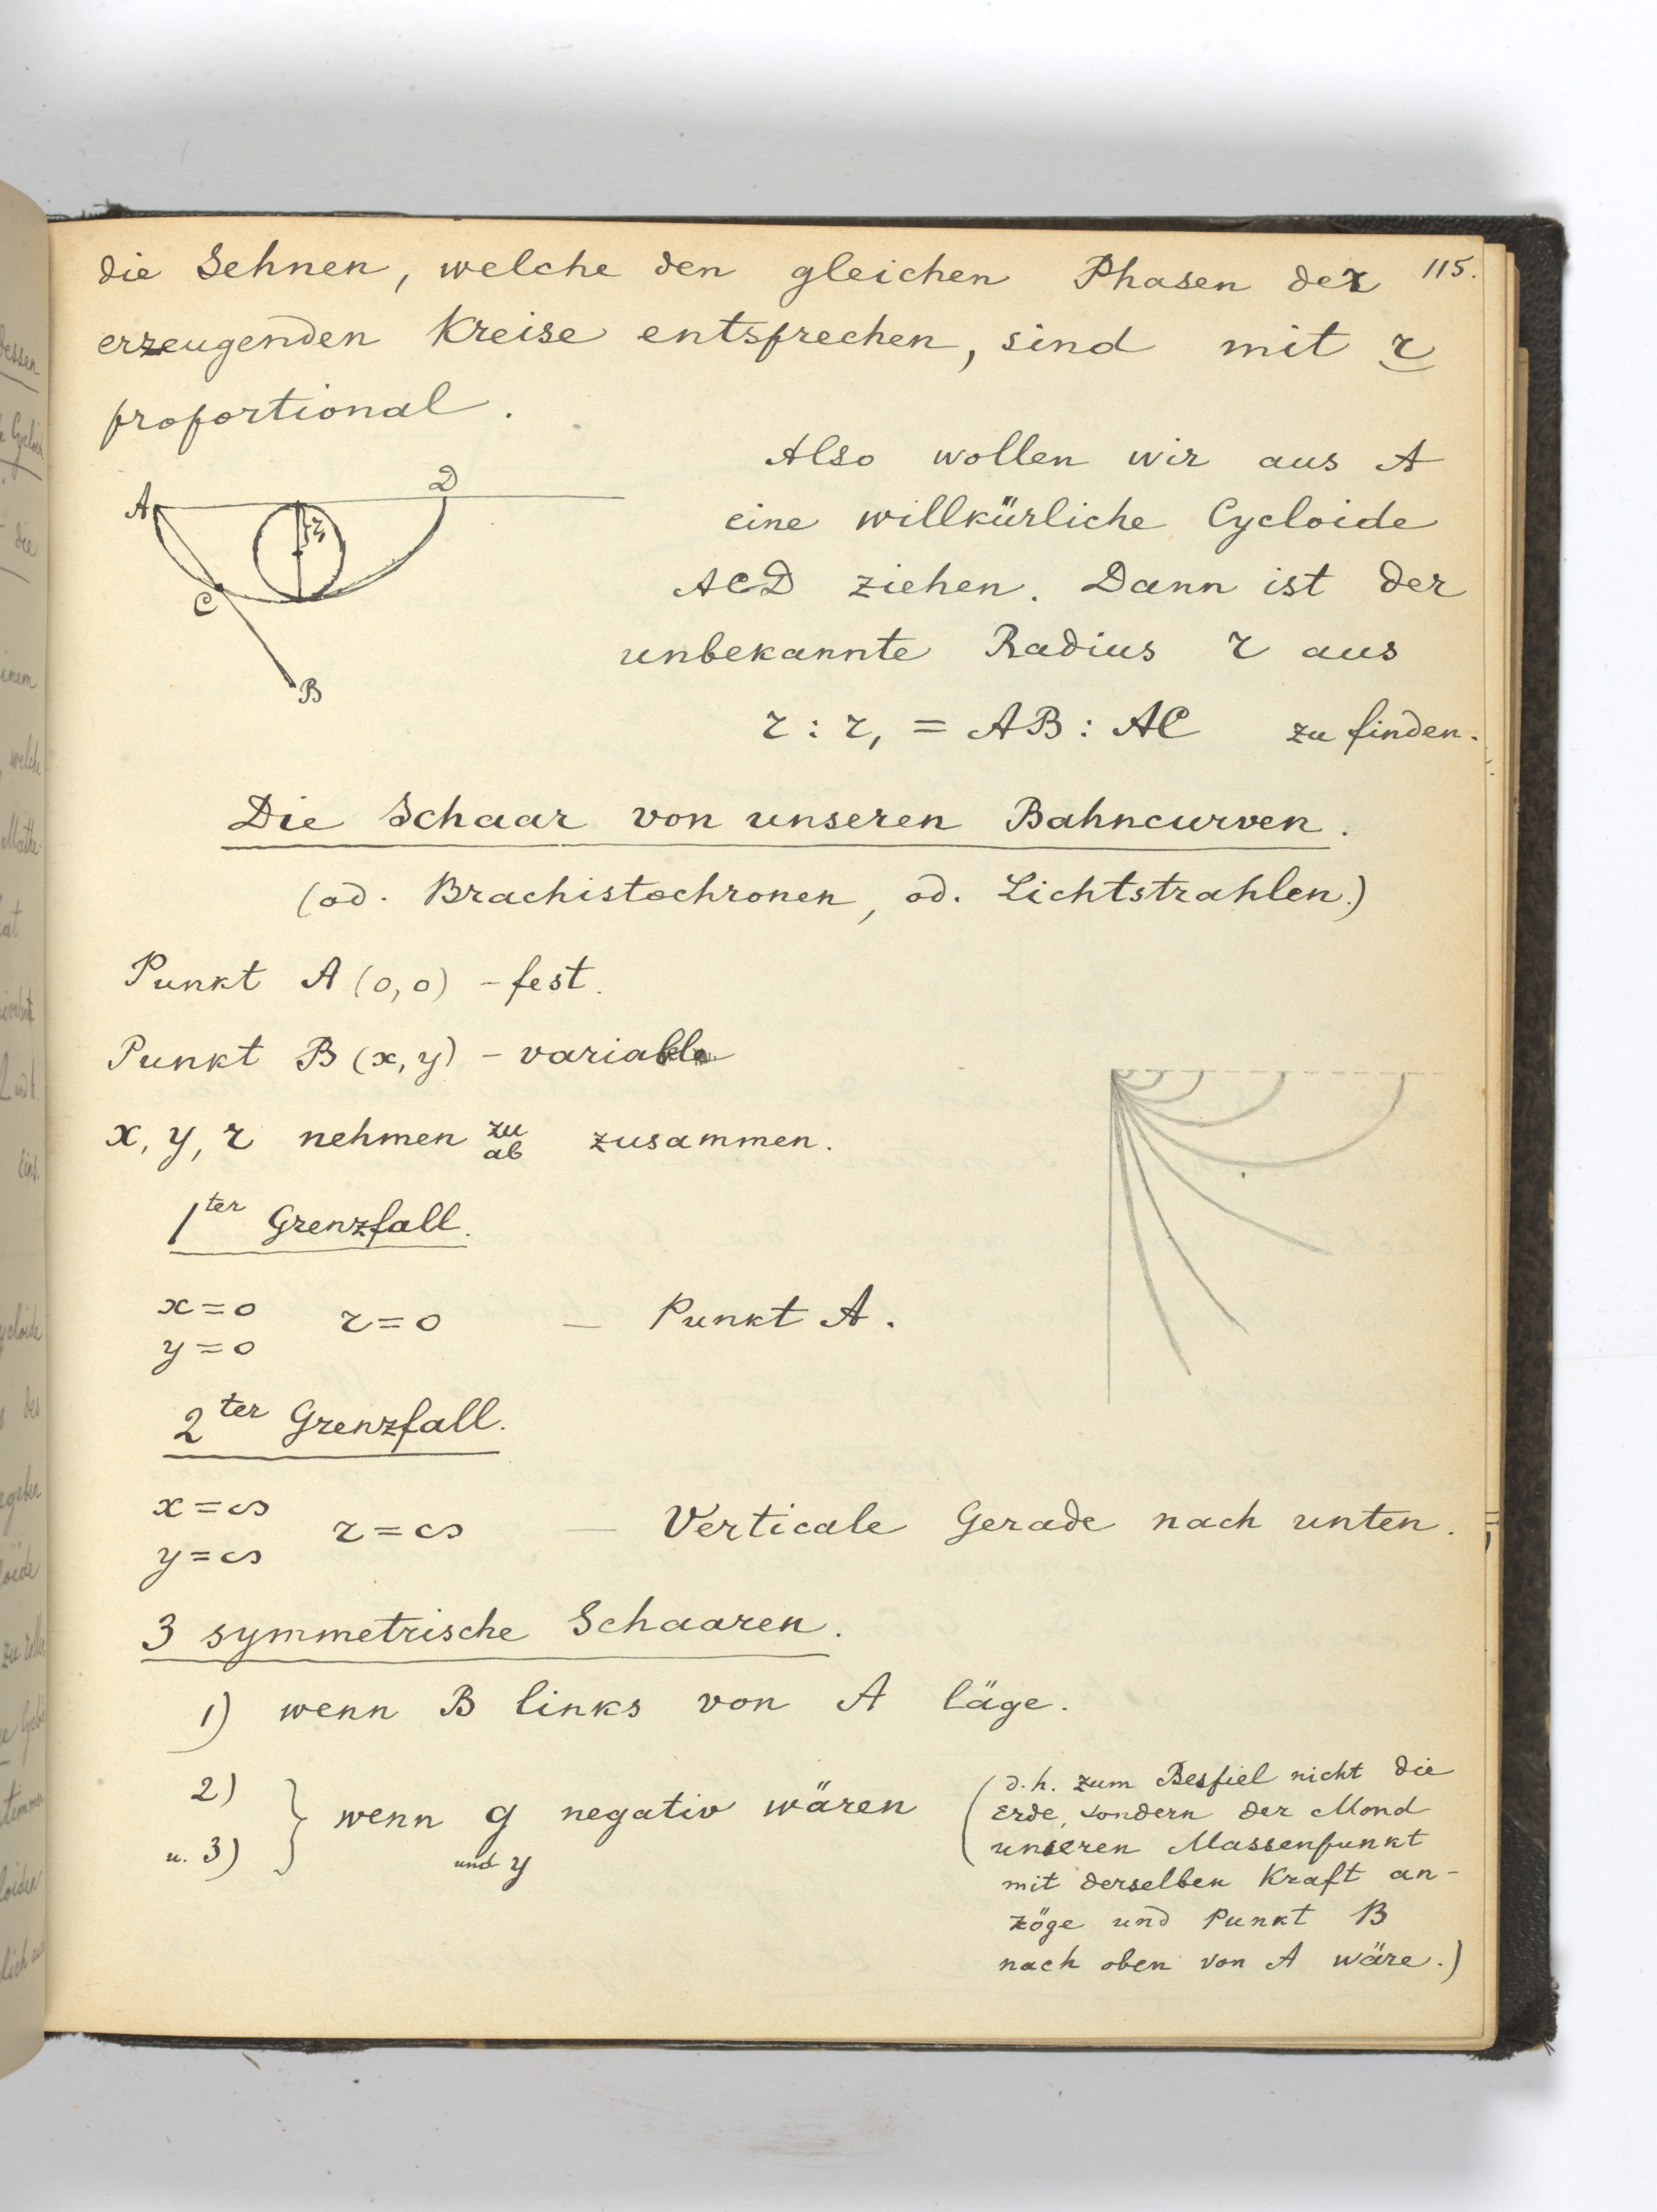 115.
die Sehnen, welche den gleichen Phasen der
erzeugenden Kreise entsprechen, sind mit r
proportional.
Also wollen wir aus A
eine willkürliche Cycloide
ACD ziehen. Dann ist der
unbekannte Radius r aus
r : r, = AB : AC zu finden.
A
D
r,
C
B
Die Schaar von unseren Bahncurven.
(od. Brachistochronen, od. Lichtstrahlen.)
Punkt A (0,0) - fest.
Punkt B (x, y) - variable
x, y, r nehmen zu ab zusammen.
1ter Grenzfall.
x=0
y=0
r=0 — Punkt A.
2ter Grenzfall.
x=∞
y=∞
r=∞ — Verticale Gerade nach unten.
3 symmetrische Schaaren.
1) wenn B links von A läge.
2)
u. 3) } wenn g negativ wären
und y
(d.h. zum Bespiel nicht die
Erde, sondern der Mond
unseren Massenpunkt
mit derselben Kraft an-
zöge und Punkt B
nach oben von A wäre.)